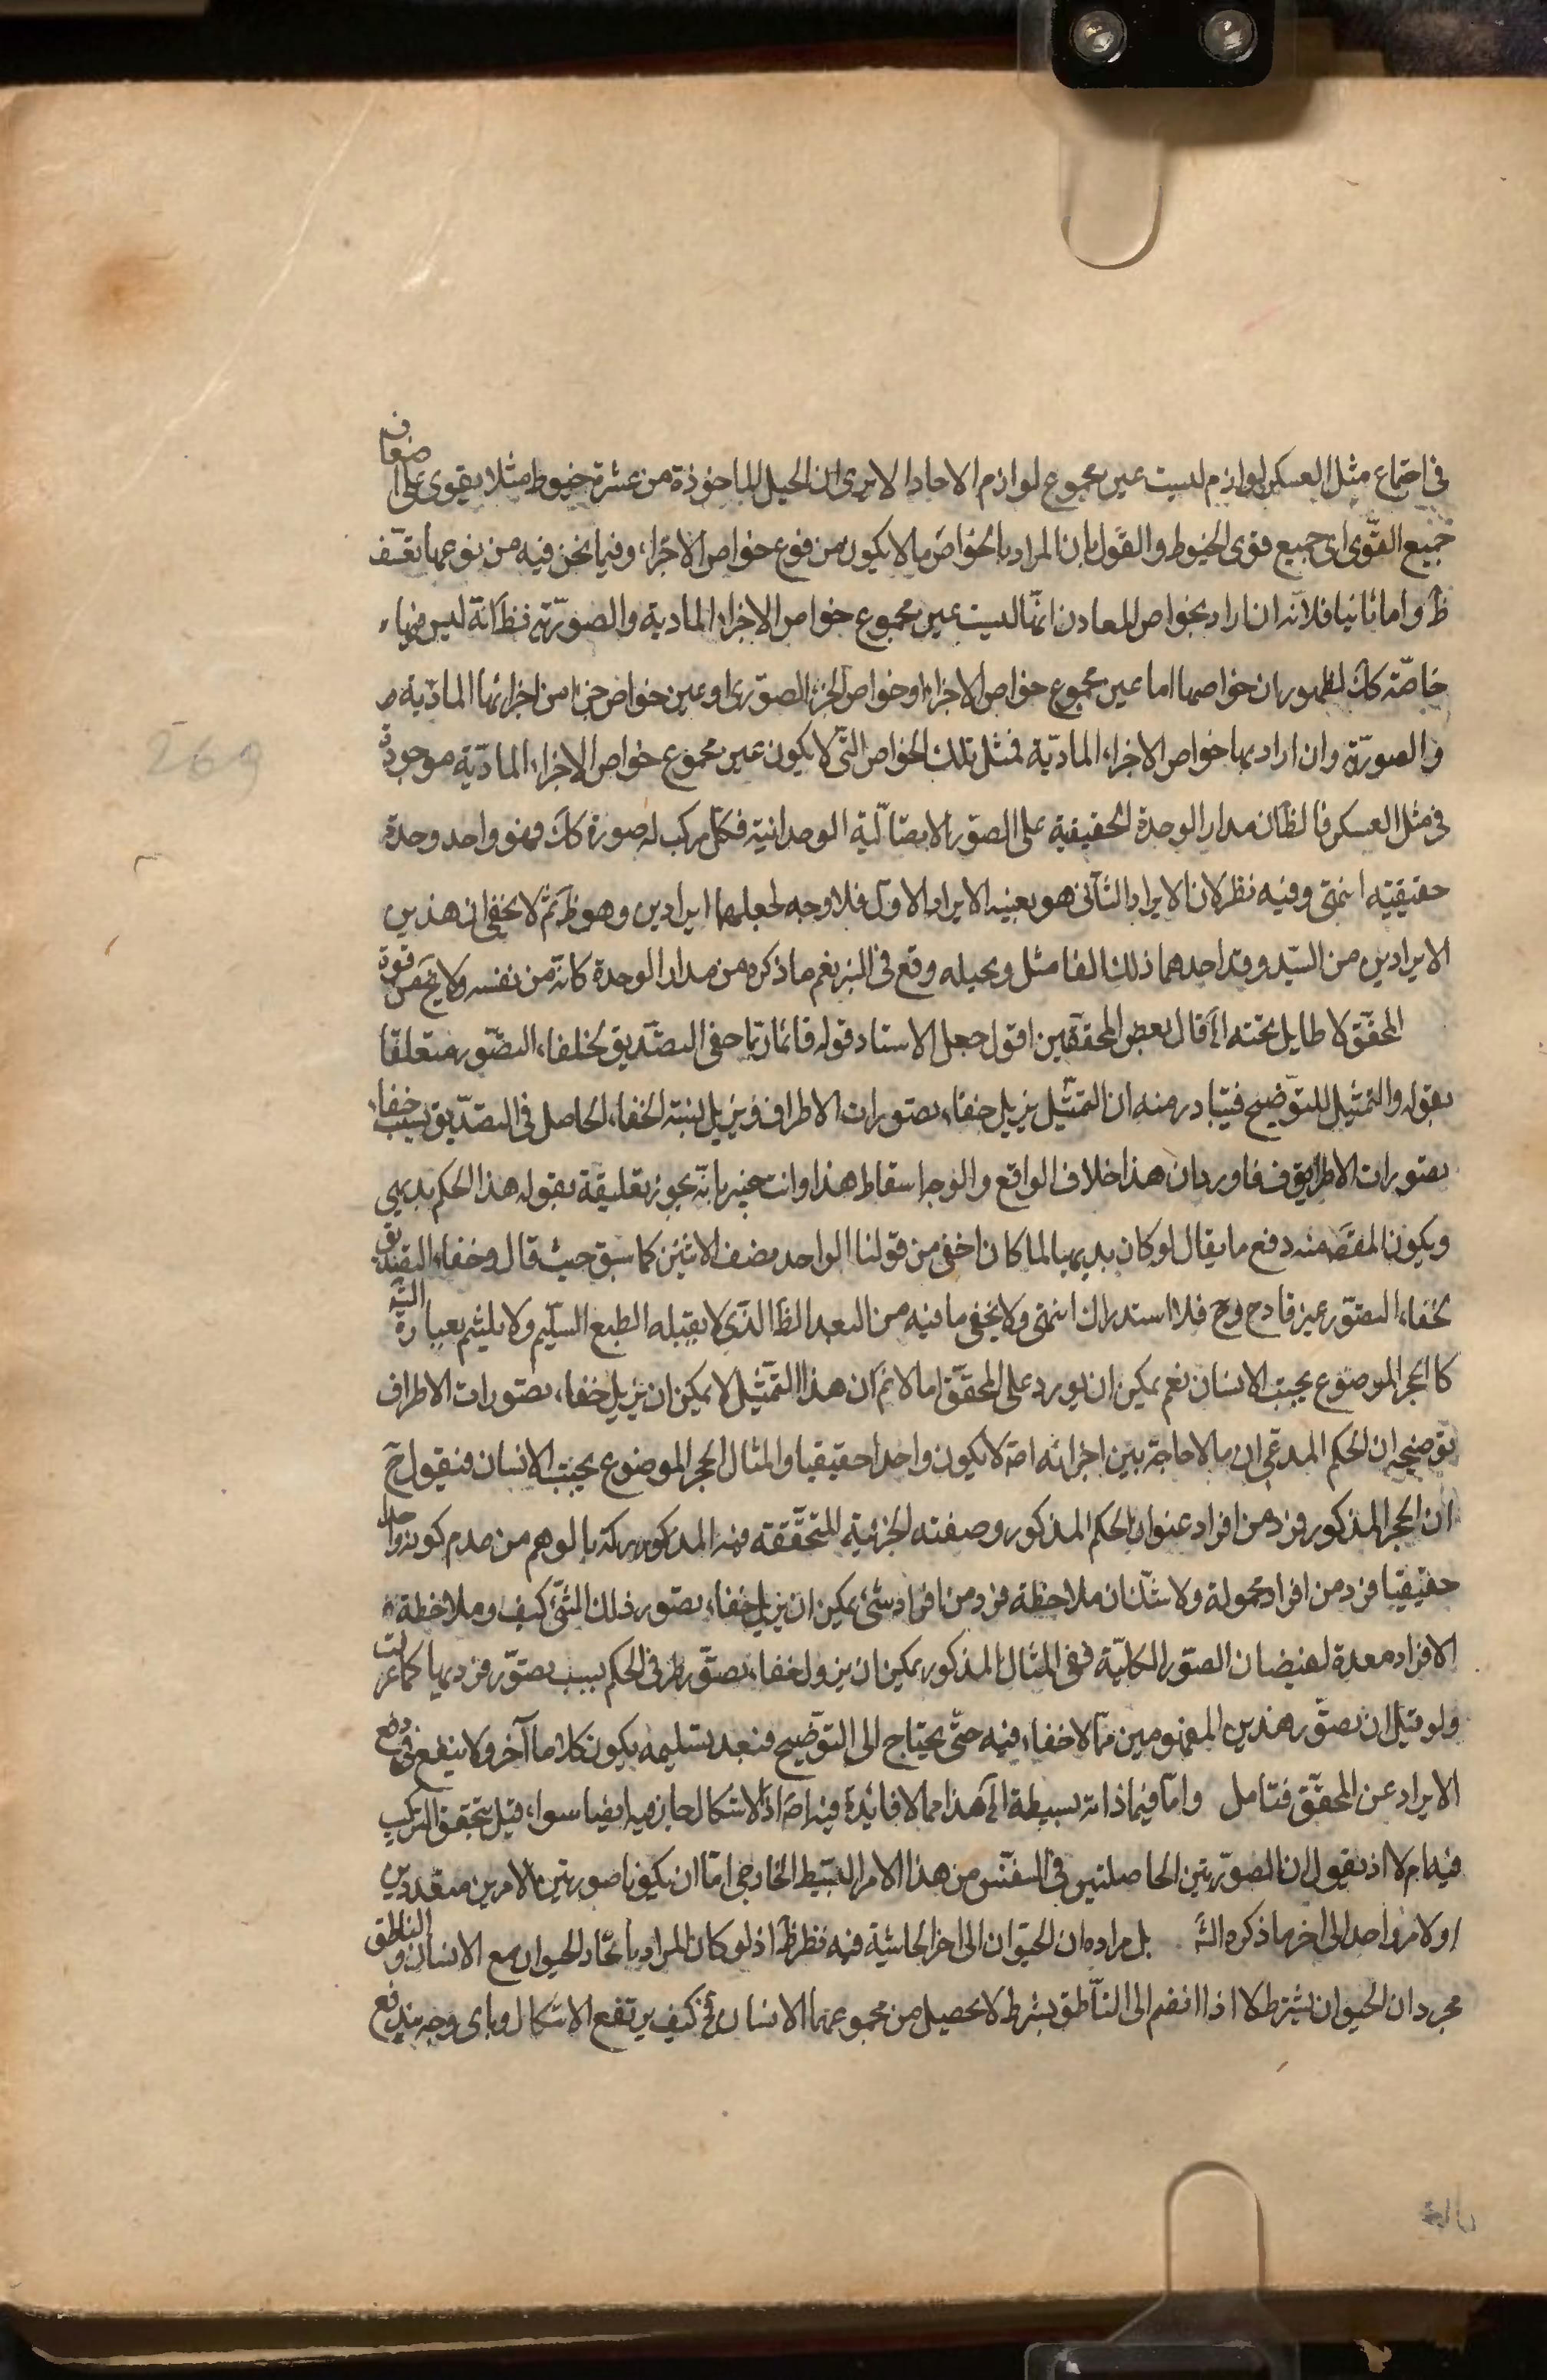 في اجتماع مثل العسكر لوازم ليست عين مجموع لوازم الاحاد الا يرى ان الحبل الماخوذة من عشرة خيوط مثلا يقوى على اضعاف
جميع القوى اى جميع قوى الخيوط والقول بان المراد بالخواص ما لا يكون من نوع خواص الاجزاء وفيما نحن فيه من نوعها تعسف
ظ واما ثانيا فلانه ان اراد بخواص المعادن انها ليست عين مجموع خواص الاجزاء المادية والصورية فظ انه ليس فيها
خاصة كك لظهور ان خواصها اما عين مجموع خواص الاجزاء او خواص الجزء الصورى او عين خواص جزء من اجزائها المادية
والصورية وان اراد بها خواص الاجزاء المادية فمثل تلك الخواص التي لا يكون عين مجموع خواص الاجزاء المادية موجودة
في مثل العسكر فالظ ان مدار الوحدة الحقيقية على الصور الاتصالية الوحدانية فكل مركب له صورة كك فهو واحد وحدة
حقيقية انتهى وفيه نظر لان الايراد الثاني هو بعينه الايراد الاول فلا وجه لجعلهما ايرادين وهو ظ ثم لا يخفى ان هذين
الايرادين من السيد وقد احدهما ذلك الفاضل وبحيله وقع في البئر نعم ما ذكره من مدار الوحدة كانه من نفسه ولا يخفى قوة
المحقق لا طايل تحته الخ قال بعض المحققين اقول جعل الاستاد قوله فانه ربما خفى التصديق لخفاء التصور متعلقا
بقوله والتمثيل للتوضيح فيتبادر منه ان التمثيل يزيل خفاء تصورات الاطراف فيزيل لبتة الخفاء الحاصل في التصديق بسبب خفاء
تصورات الاطراف فاورد ان هذا خلاف الواقع والوجه اسقاط هذا وانت خبير بانه يجوز تعليقه بقوله هذا الحكم بديهي
ويكون المقصَ منه دفع ما يقال لو كان بديهيا لما كان اخفى من قولنا الواحد نصف الاثنين كما سبق حيث قال وخفاء التصديق
لخفاء التصور غير قادح وح فلا استدراك انتهى ولا يخفى ما فيه من البعد الظ الذي لا يقبله الطبع السليم ولا يلتئم بعبارة الش
كالحجر الموضوع بجنب الانسان نعم يمكن ان يورد على المحقق انا لا نم ان هذا التمثيل لا يمكن ان يزيل خفاء تصورات الاطراف
توضيحه ان الحكم المدعى ان ما لا حاجة بين اجزائه اصَ لا يكون واحدا حقيقيا والمثال الحجر الموضوع بجنب الانسان فنقول ح
ان الحجر المذكور فرد من افراد عنوان الحكم المذكور وصفته الجزئية المتحققة فيه المذكور بركة بالوهم من عدم كونه واحدا
حقيقيا فرد من افراد محمولة ولا شك ان ملاحظة فرد من افراد شئ يمكن ان يزيل خفاء تصور ذلك الشئ كيف وملاحظة
الافراد معدة لفيضان الصور الكلية ففي المثال المذكور يمكن ان يزول خفاء تصور طرفى الحكم بسبب تصور فرديهما كما عرفت
ولو قيل ان تصور هذين المفهومين مما لا خفاء فيه حتى يحتاج الى التوضيح فبعد تسليمه يكون كلاما آخر ولا ينفع في دفع
الايراد عن المحقق فتامل واما فيما ذاته بسيطة الخ هذا مما لا فائدة فيه اصَ اذ الاشكال جار فيه ايضا سواء قيل بتحقق التركيب
فيه ام لا اذ نقول ان الصورتين الحاصلتين في النفس من هذا الامر البسيط الخارجى اما ان يكونا صورتين لامرين متعددين
او لامر واحد الى اخر ما ذكره الش بل مراده ان الحيوان الى اخر الحاشية فيه نظر ظ اذ لو كان المراد باتحاد الحيوان مع الانسان والناطق
مجرد ان الحيوان بشرط لا اذا انضم الى الناطق بشرط لا يحصل من مجموعهما الانسان فح كيف يرتفع الاشكال وباى وجه يندفع
269